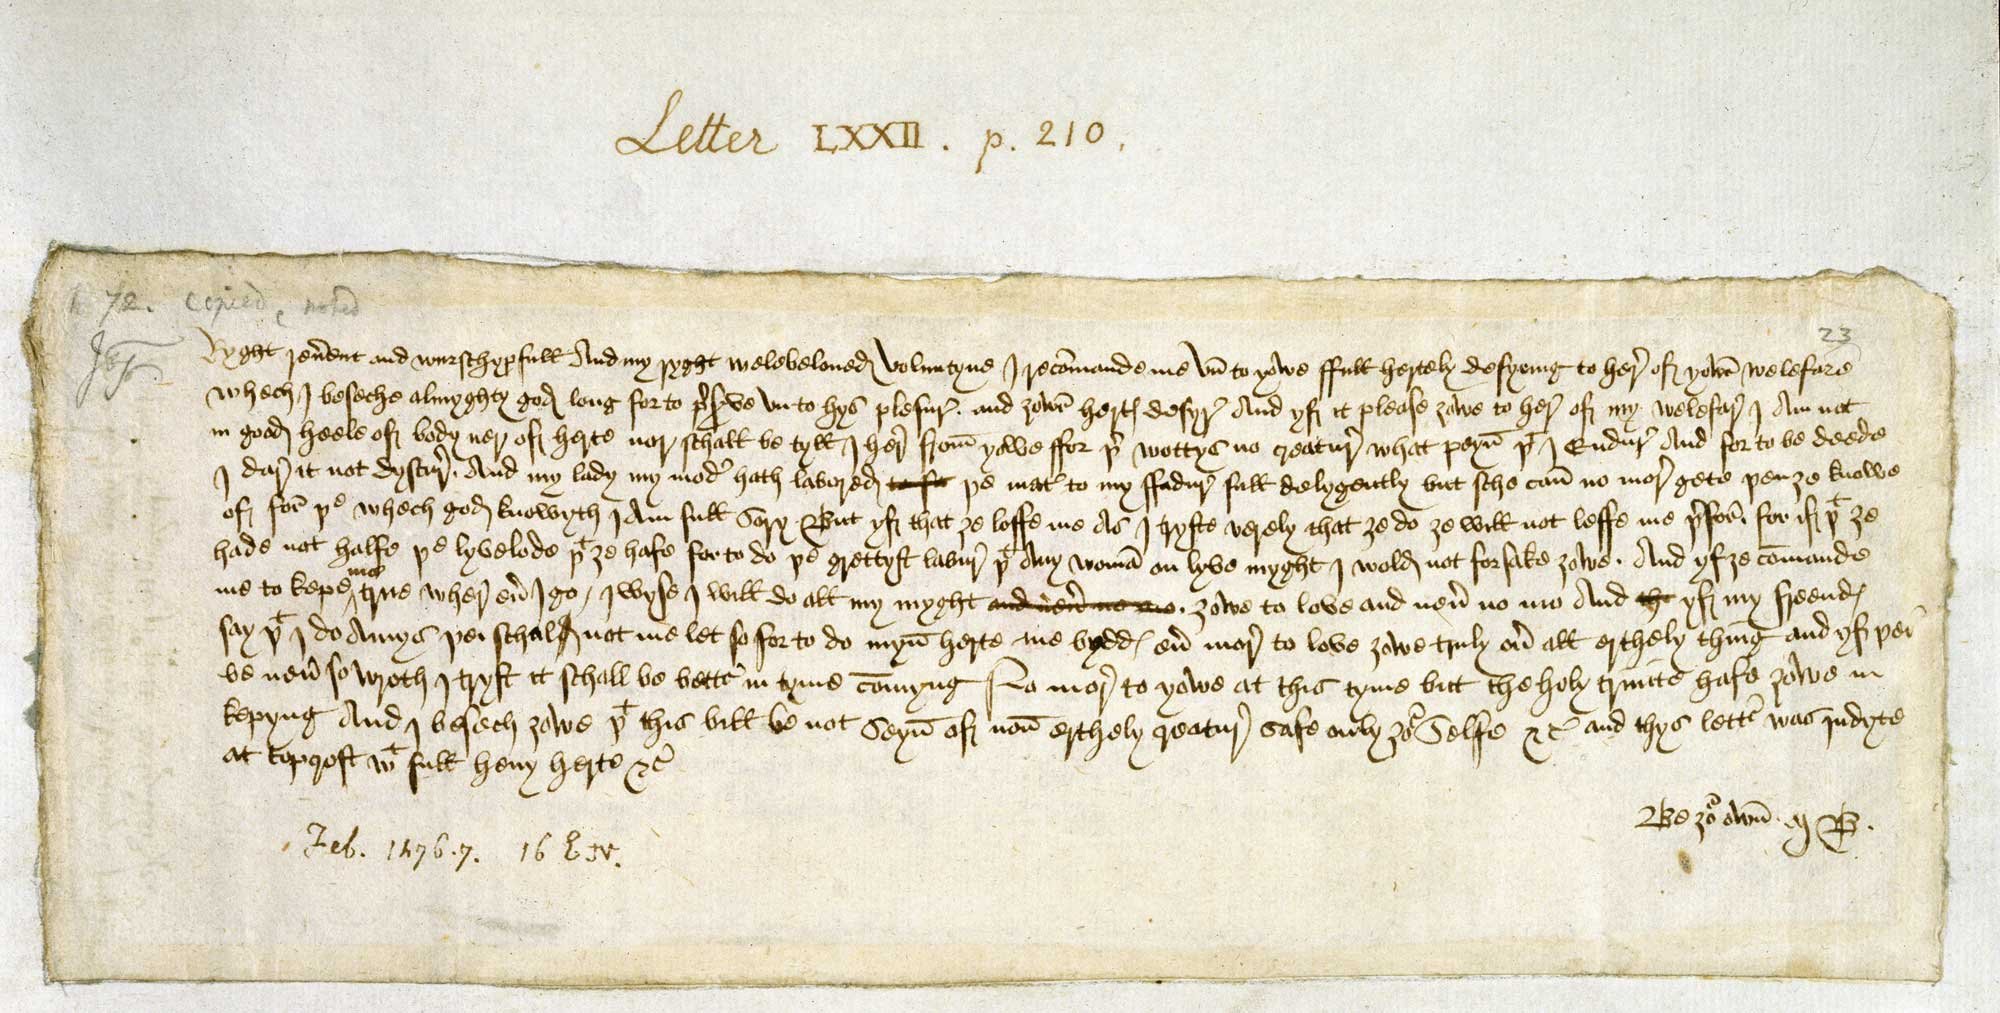 Letter LXXII. p. 210.
72. copied, noted
23
Ryght reu'ent and wurschypfull And my ryght welebeloued Voluntyne I recomande me vn to yowe ffull hertely desyring to her' of yowr' welefare
whech I beseche almyghty god long for to p'serve vn to hys plesur' . and ʒowr' hert' desyr' And yf it please ʒowe to her' of my welefar' I Am not
in good heele of body ner of herte nor schall be tyll I her' from yowe ffor þ' wottys no creatur' what peyn þt I Endur' And for to be deede
I dar' it not dyscur' . And my lady my mod' hath labored to þe mat' to my ffadur full delygently but sche can no mor' gete þen ʒe knowe
of for þe whech god knowyth I Am full sory . But yf that ʒe loffe me As I tryste verely that ʒe do ʒe will not leffe me þ'for' . for if þt ʒe
hade not halfe þe lyvelode þt ʒe hafe for to do þe grettyst labur' þt Any woman on lyve myght I wold not forsake ʒowe . And yf ʒe comande
me to kepe me true wher eu' I go / I wyse I will do all my myght and neu' no mo . ʒowe to love and neu' no mo And yf my freend'
say þt I do Amys þei schal not me let so for to do myn herte me bydd' eu' mor' to love ʒowe truly ou' all erthely thing and yf þei
be neu' so wroth I tryst it schall be bett' in tyme comyng No mor' to yowe at this tyme but the holy trinite hafe ʒowe in
kepyng And I besech ʒowe þt this bill be not seyn of non erthely creatur' safe only ʒor Selfe &c' and thys lett' was indyte
at topcroft wt full heuy herte &c'
Be ʒor own . M B .
Feb. 1476.7. 16 E IV.